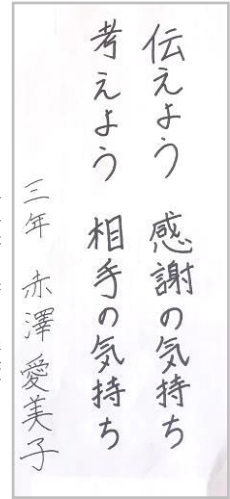 伝えよう 感謝の気持ち
考えよう 相手の気持ち
三年 赤澤愛美子